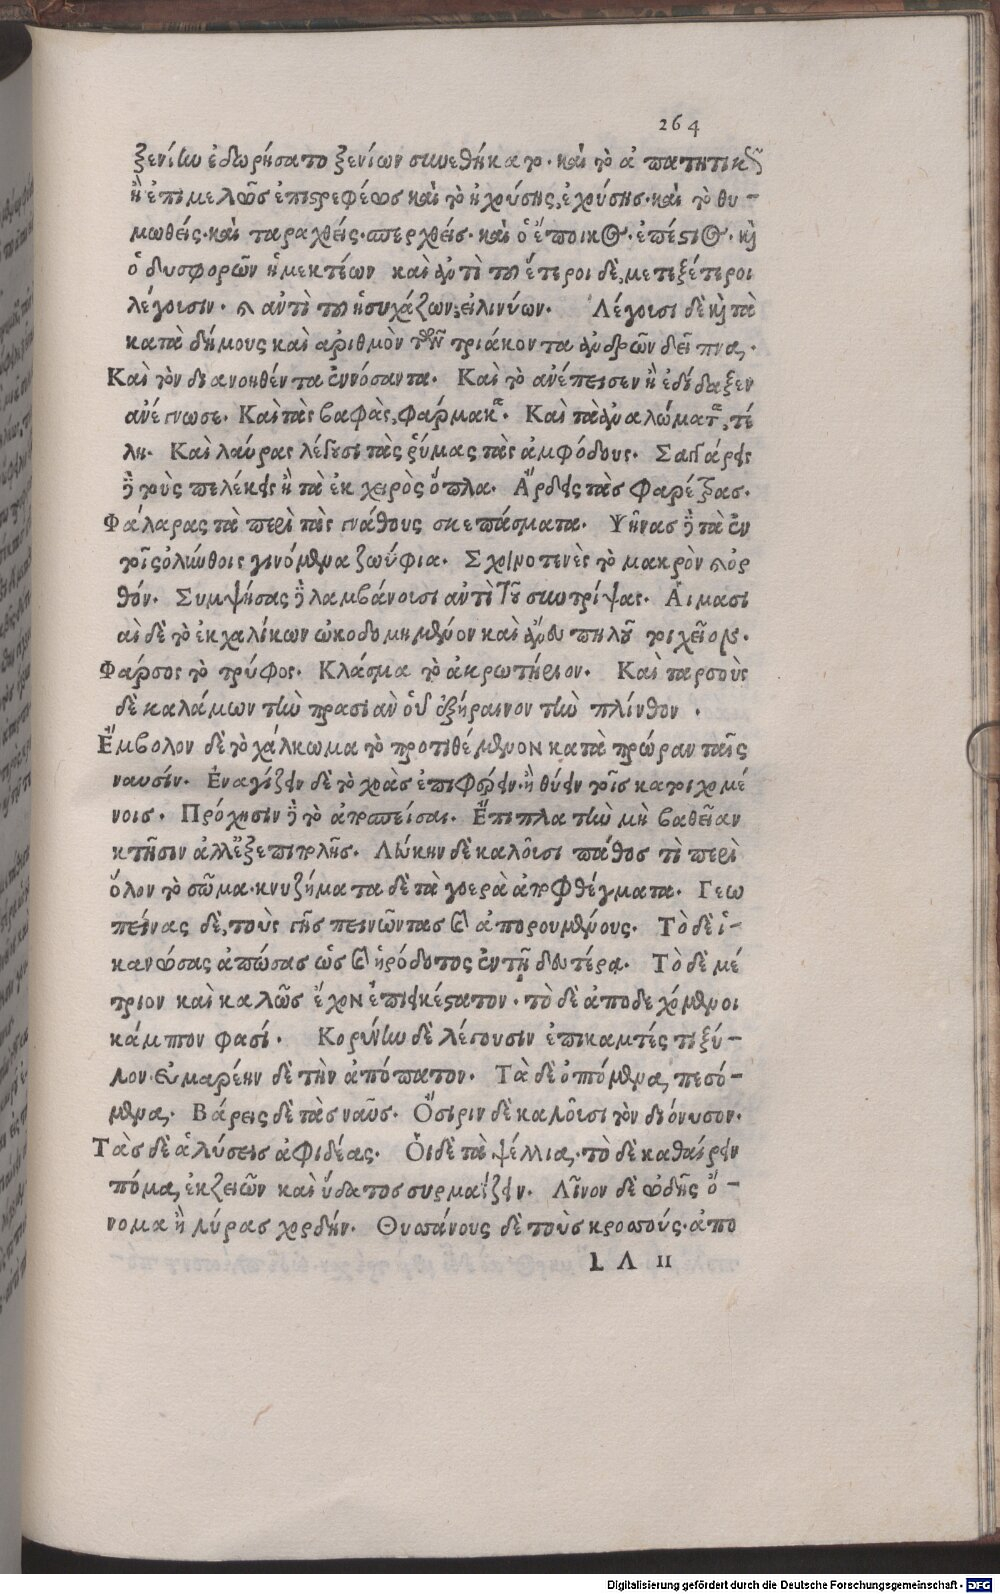 264
ξενίην ἐδωρήσατο ξενίων συνεθήκατο. καὶ τὸ ἀπατητικῶς
ἢ ἐπιμελῶς ἐπιστρεφέως καὶ τὸ ἠχρύσης, ἐχρύσης. καὶ τὸ θυ-
μωθείς. καὶ ταραχθείς. περχθείς. καὶ ὁ ἔποικος. ἐπέστιος. καὶ
ὁ δυσφορῶν ἡμεκτέων καὶ ἀντὶ τοῦ ἕτεροι δὲ, μετεξέτεροι
λέγοισιν. καὶ αὐτὶ τοῦ ἡσυχάζων, ἐλινύων. Λέγοισι δὲ καὶ τὰ
κατὰ δήμους καὶ ἀριθμὸν τῶν τριάκοντα ἀνδρῶν δεῖπνα.
Καὶ τὸν διανοηθέντα ἐννόσαντα. Καὶ τὸ ἀνέπεισεν ἢ ἐδίδαξεν
ἀνέγνωσε. Καὶ τὰς βαφὰς, φάρμακα. Καὶ τὰ ἀναλώματα, τέ
λη. Καὶ λαύρας λέγουσι τὰς ῥύμας τὰς ἀμφόδους. Σαγάρις
δὲ τοὺς πελέκεις ἢ τὰ ἐκ χειρὸς ὅπλα. Ἄρδεις τὰς φαρέξας.
Φάλαρας τὰ περὶ τὰς γνάθους σκεπάσματα. Ψῆνας δὲ τὰ ἐν
τοῖς ὀλύνθοις γινόμενα ζωΰφια. Σχοινοτενὲς τὸ μακρὸν καὶ ὀρ
θόν. Συμψήσας δὲ λαμβάνοισι αὐτὶ τοῦ συντρίψας. Αἱμασι
αὶ δὲ τὸ ἐκ χαλίκων ᾠκοδομημένον καὶ ἄνευ πηλοῦ τειχεῖον.
Φάρσος τὸ τρύφος. Κλάσμα τὸ ἀκρωτήριον. Καὶ ταρσοὺς
δὲ καλάμων τὴν πρασιὰν οὗ ἐξήραινον τὴν πλίνθον.
Ἔμβολον δὲ τὸ χάλκωμα τὸ προτιθέμενον κατὰ πρώραν ταῖς
ναυσίν. Ἐναγίζειν δὲ τὸ χοὰς ἐπιφέρειν. ἢ θύειν τοῖς κατοιχομέ
νοις. Πρόχησιν δὲ τὸ ἀτραπείσαι. Ἔπιπλα τὴν μὴ βαθεῖαν
κτῆσιν ἀλλ' ἐξεπιπολῆς. Λώκην δὲ καλοῖσι πάθος τὶ περὶ
ὅλον τὸ σῶμα. κνυζήματα δὲ τὰ γοερὰ ἀποφθέγματα. Γεω
πείνας δὲ, τοὺς γῆς πεινῶντας καὶ ἀπορουμένους. Τὸ δὲ ἱ-
κανώσας ἀπώσας ὡς καὶ ἡρόδοτος ἐν τῇ δευτέρᾳ. Τὸ δὲ μέ
τριον καὶ καλῶς ἔχον ἐπιεικέστατον. τὸ δὲ ἀποδεχόμενοι
κάμπον φασί. Κορύνην δὲ λέγουσιν ἐπικαμπές τι ξύ-
λον. εὐμαρέην δὲ τὴν ἀπόπατον. Τὰ δὲ ὀπτόμενα, πεσό-
μενα. Βάρεις δὲ τὰς ναῦς. Ὄσιριν δὲ καλοῖσι τὸν διόνυσον.
Τὰς δὲ ἁλύσεις ἀφιδέας. Οἱ δὲ τὰ ψέλλια. τὸ δὲ καθαίρειν
πόμα, ἐκζειῶν καὶ ὕδατος συρμαΐζειν. Λῖνον δὲ ᾠδῆς ὄ-
νομα ἢ λύρας χορδήν. Θυσάνους δὲ τοὺς κροσσούς. ἀπο
LΛ II
Digitalisierung gefördert durch die Deutsche Forschungsgemeinschaft - DFG